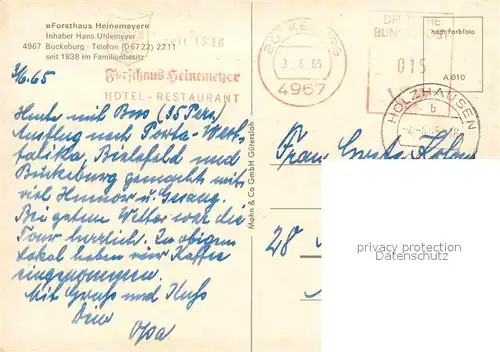 »Forsthaus Heinemeyer«
Inhaber Hans Uhlemeyer
4967 Bückeburg - Telefon (05722) 2211
seit 1838 im Familienbesitz
seit 1838
Forsthaus Heinemeyer
HOTEL-RESTAURANT
BÜCKEBURG
3.6.65
4967
DEUTSCHE
BUNDESPOST
015
nach Farbfoto
A 010
HOLZHAUSEN
b
3/6.65
Heute mit Bus (35 Pers)
Ausflug nach Porta-West-
falika, Bielefeld und
Bückeburg gemacht mit
viel Humor u. Gesang.
Bei gutem Wetter war die
Tour herrlich. In obigem
Lokal haben wir Kaffee
eingenommen.
Mit Gruss und Kuss
Dein
Opa
Mohn & Co GmbH Gütersloh
Frau
28
privacy protection
Datenschutz